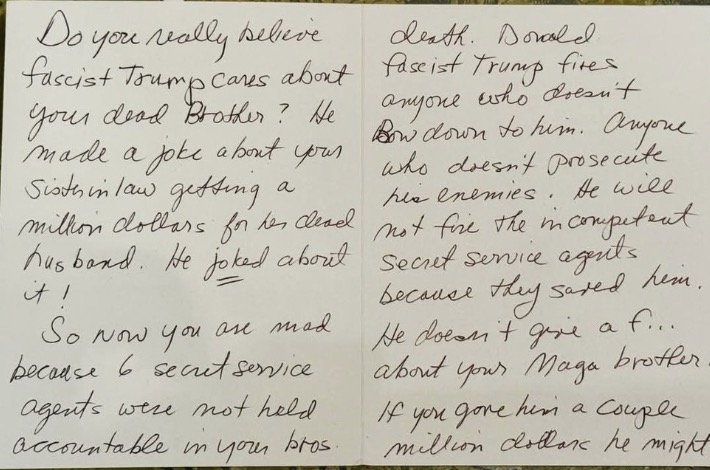 Do you really believe
fascist Trump cares about
your dead Brother? He
made a joke about your
Sister in law getting a
million dollars for her dead
husband. He joked about
it!
So now you are mad
because 6 secret service
agents were not held
accountable in your bros.
death. Donald
fascist Trump fires
anyone who doesn't
Bow down to him. Anyone
who doesn't prosecute
his enemies. He will
not fire the incompetent
secret service agents
because they saved him.
He doesn't give a f...
about your Maga brother.
If you gave him a couple
million dollars he might